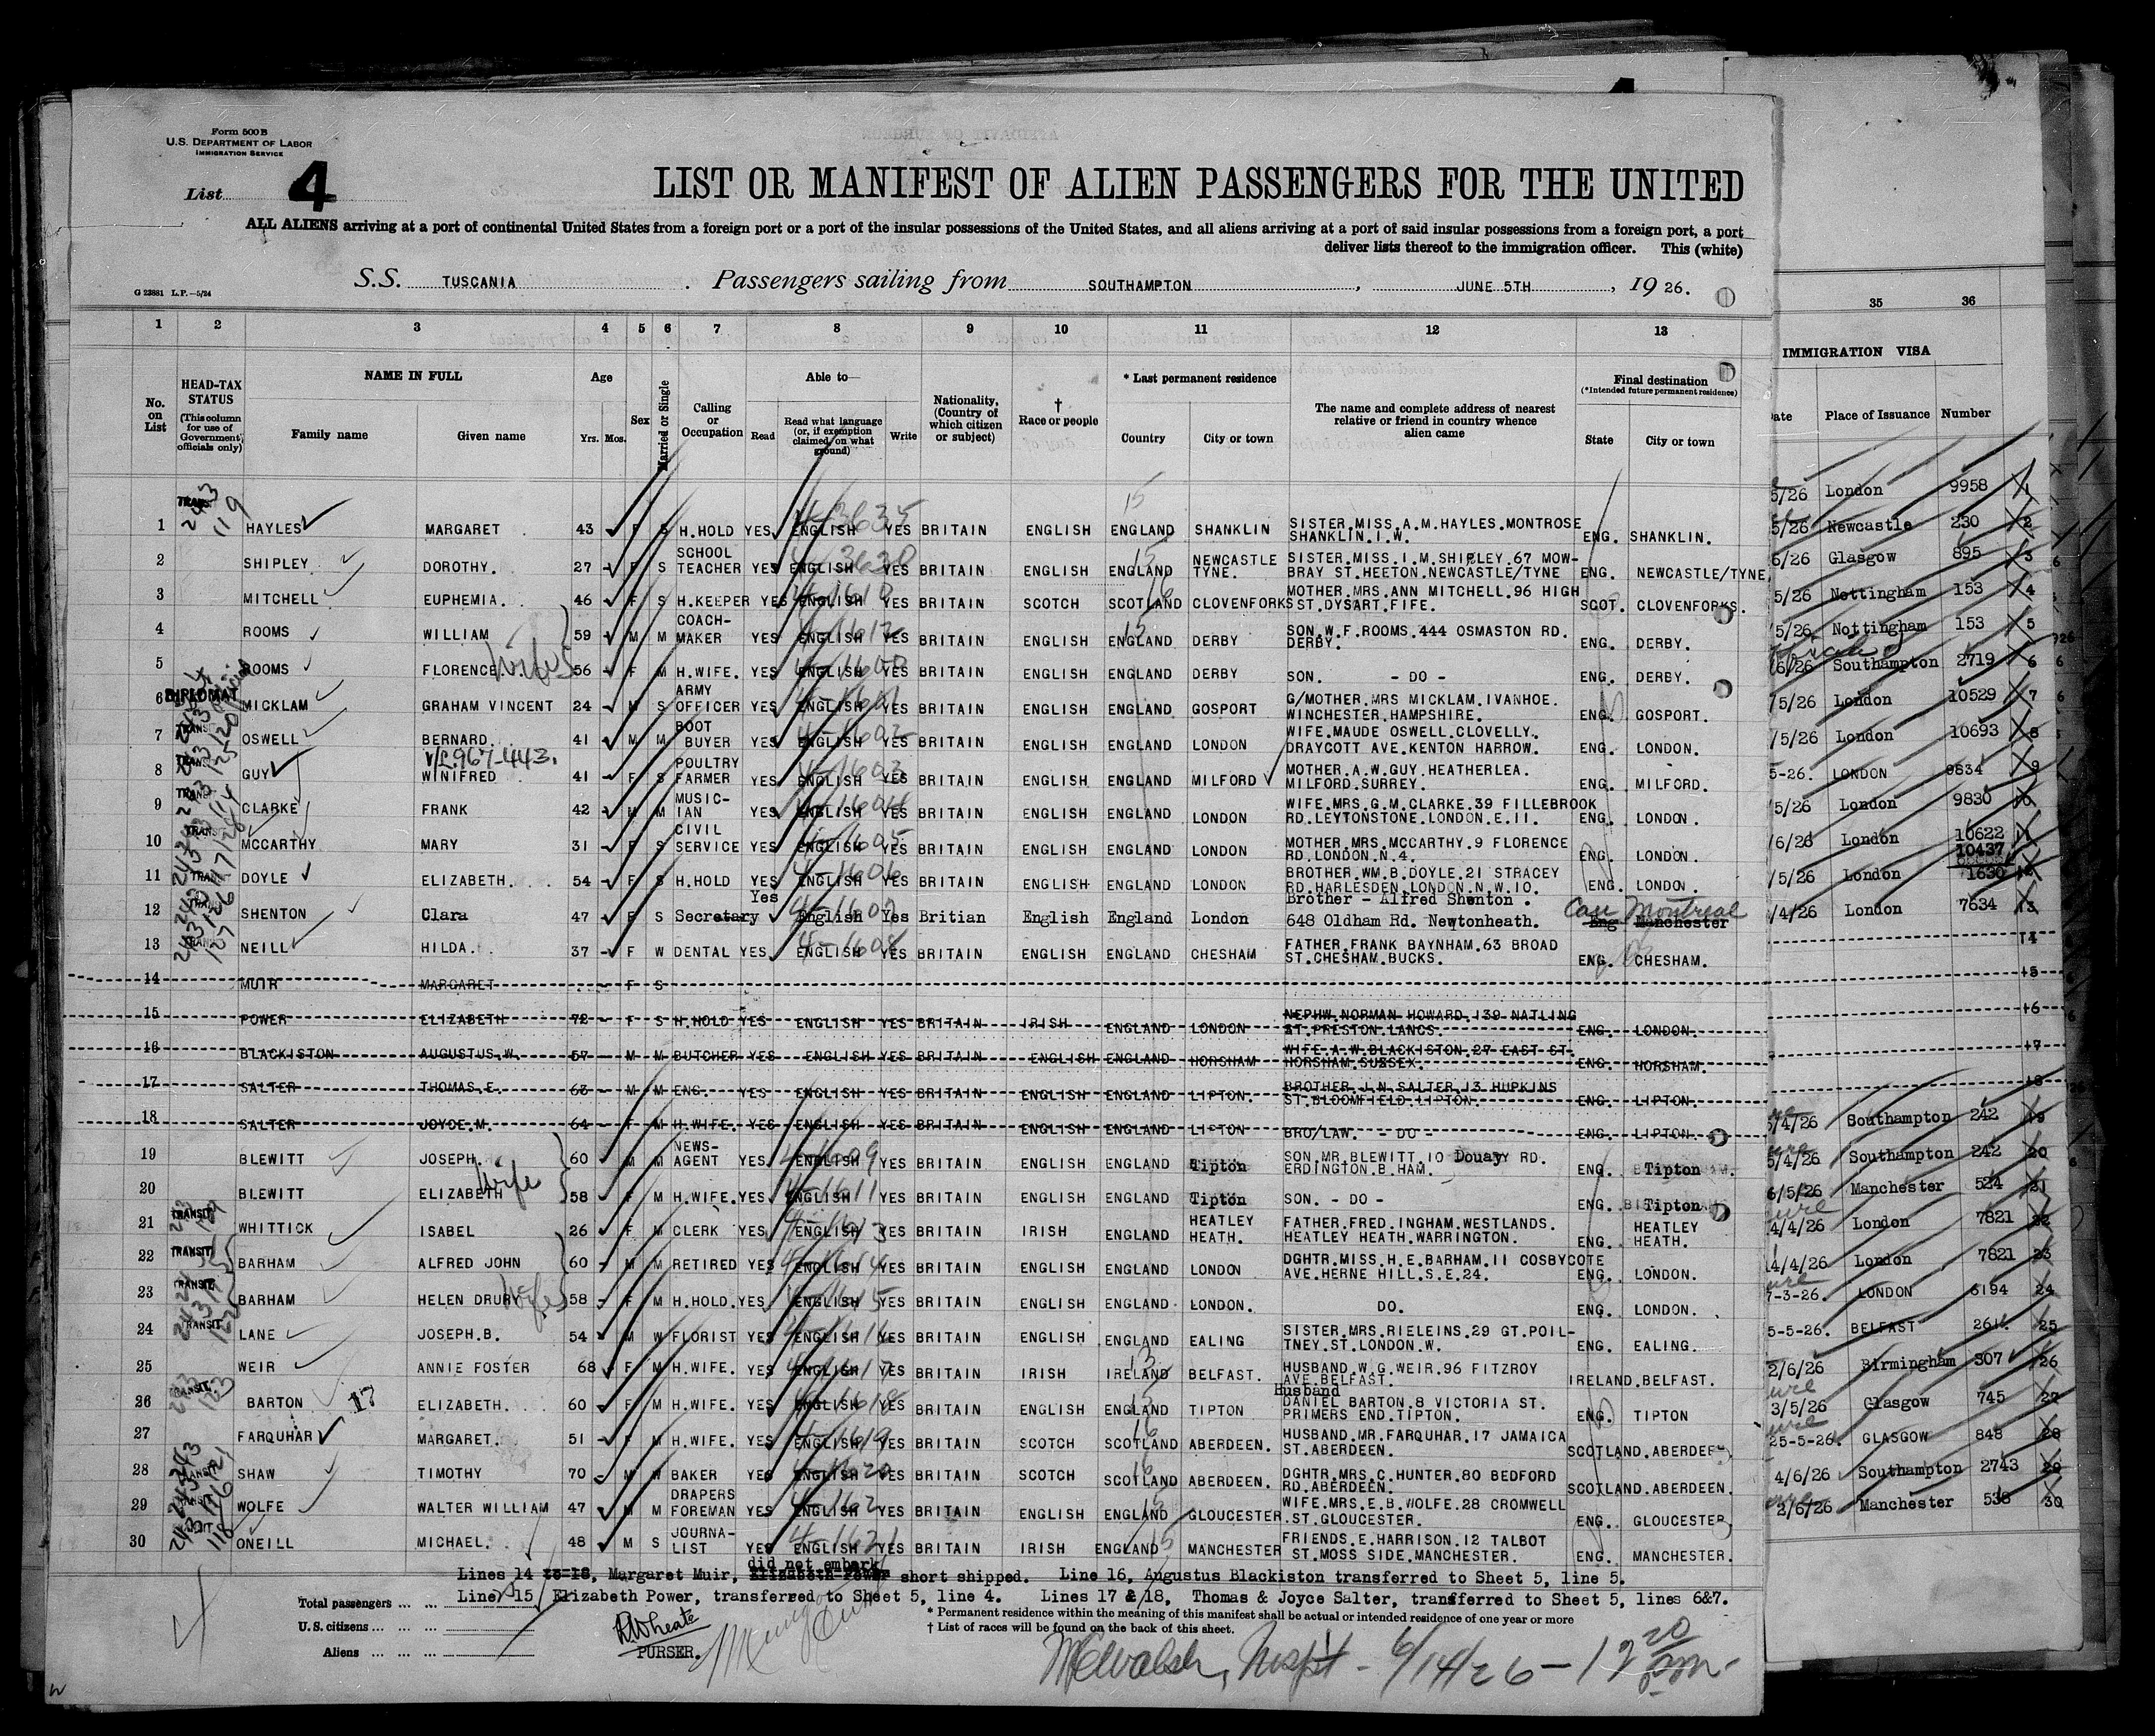 Form 500 B
U.S. DEPARTMENT OF LABOR
IMMIGRATION SERVICE
List 4
LIST OR MANIFEST OF ALIEN PASSENGERS FOR THE UNITED
ALL ALIENS arriving at a port of continental United States from a foreign port or a port of the insular possessions of the United States, and all aliens arriving at a port of said insular possessions from a foreign port, a port
deliver lists thereof to the immigration officer. This (white)
S.S. TUSCANIA . Passengers sailing from SOUTHAMPTON , JUNE 5TH , 19 26.
G 23881 L.P.—5/24
1 2 3 4 5 6 7 8 9 10 11 12 13 35 36
No. on List
HEAD-TAX STATUS (This column for use of Government officials only)
NAME IN FULL
Family name Given name
Age
Yrs. Mos.
Sex
Married or Single
Calling or Occupation
Able to—
Read Read what language (or, if exemption claimed, on what ground) Write
Nationality, (Country of which citizen or subject)
† Race or people
* Last permanent residence
Country City or town
The name and complete address of nearest relative or friend in country whence alien came
Final destination
(*Intended future permanent residence)
State City or town
IMMIGRATION VISA
Date Place of Issuance Number
1 HAYLES MARGARET 43 F S H.HOLD YES ENGLISH YES BRITAIN ENGLISH ENGLAND SHANKLIN SISTER.MISS.A.M.HAYLES.MONTROSE SHANKLIN.I.W. ENG. SHANKLIN.
2 SHIPLEY DOROTHY. 27 F S SCHOOL TEACHER YES ENGLISH YES BRITAIN ENGLISH ENGLAND NEWCASTLE TYNE. SISTER.MISS.I.M.SHIPLEY.67 MOW-BRAY ST.HEETON.NEWCASTLE/TYNE ENG. NEWCASTLE/TYNE.
3 MITCHELL EUPHEMIA. 46 F S H.KEEPER YES ENGLISH YES BRITAIN SCOTCH SCOTLAND CLOVENFORKS MOTHER.MRS.ANN MITCHELL.96 HIGH ST.DYSART.FIFE. SCOT. CLOVENFORKS.
4 ROOMS WILLIAM 59 M M COACH-MAKER YES ENGLISH YES BRITAIN ENGLISH ENGLAND DERBY SON.W.F.ROOMS.444 OSMASTON RD. DERBY. ENG. DERBY.
5 ROOMS FLORENCE. Wife 56 F M H.WIFE. YES ENGLISH YES BRITAIN ENGLISH ENGLAND DERBY SON. - DO - ENG. DERBY.
6 DIPLOMAT MICKLAM GRAHAM VINCENT 24 M S ARMY OFFICER YES ENGLISH YES BRITAIN ENGLISH ENGLAND GOSPORT G/MOTHER.MRS MICKLAM.IVANHOE. WINCHESTER.HAMPSHIRE. ENG. GOSPORT.
7 OSWELL BERNARD 41 M M BOOT BUYER YES ENGLISH YES BRITAIN ENGLISH ENGLAND LONDON WIFE.MAUDE OSWELL.CLOVELLY. DRAYCOTT AVE.KENTON HARROW. ENG. LONDON.
8 GUY WINIFRED 41 F S POULTRY FARMER YES ENGLISH YES BRITAIN ENGLISH ENGLAND MILFORD MOTHER.A.W.GUY.HEATHERLEA. MILFORD.SURREY. ENG. MILFORD.
9 CLARKE FRANK 42 M M MUSIC-IAN YES ENGLISH YES BRITAIN ENGLISH ENGLAND LONDON WIFE.MRS.G.M.CLARKE.39 FILLEBROOK RD.LEYTONSTONE.LONDON.E.11. ENG. LONDON.
10 MCCARTHY MARY 31 F S CIVIL SERVICE YES ENGLISH YES BRITAIN ENGLISH ENGLAND LONDON MOTHER.MRS.MCCARTHY.9 FLORENCE RD.LONDON.N.4. ENG. LONDON.
11 DOYLE ELIZABETH. 54 F S H.HOLD YES ENGLISH YES BRITAIN ENGLISH ENGLAND LONDON BROTHER.WM.B.DOYLE.21 STRACEY RD.HARLESDEN.LONDON.N.W.10. ENG. LONDON.
12 SHENTON Clara 47 F S Secretary Yes English Yes Britian English England London Brother - Alfred Shenton . 648 Oldham Rd. Newtonheath. Eng Manchester Can Montreal
13 NEILL HILDA. 37 F W DENTAL YES ENGLISH YES BRITAIN ENGLISH ENGLAND CHESHAM FATHER.FRANK BAYNHAM.63 BROAD ST.CHESHAM.BUCKS. ENG. CHESHAM.
14 MUIR MARGARET F S
15 POWER ELIZABETH 72 F S H.HOLD YES ENGLISH YES BRITAIN IRISH ENGLAND LONDON NEPHW.NORMAN HOWARD.139 NATLING ST.PRESTON.LANCS. ENG. LONDON.
16 BLACKISTON AUGUSTUS.W. 57 M M BUTCHER YES ENGLISH YES BRITAIN ENGLISH ENGLAND HORSHAM WIFE.A.W.BLACKISTON.27 EAST ST. HORSHAM.SUSSEX. ENG. HORSHAM.
17 SALTER THOMAS.E. 63 M M ENG. YES ENGLISH YES BRITAIN ENGLISH ENGLAND LIPTON. BROTHER.J.N.SALTER.13 HUPKINS ST.BLOOMFIELD.LIPTON. ENG. LIPTON.
18 SALTER JOYCE.M. 64 F M H.WIFE. YES ENGLISH YES BRITAIN ENGLISH ENGLAND LIPTON BRO/LAW. - DO - ENG. LIPTON.
19 BLEWITT JOSEPH. 60 M M NEWS-AGENT YES ENGLISH YES BRITAIN ENGLISH ENGLAND Tipton SON.MR.BLEWITT.10 Douay RD. ERDINGTON.B.HAM. ENG. Tipton
20 BLEWITT ELIZABETH Wife 58 F M H.WIFE. YES ENGLISH YES BRITAIN ENGLISH ENGLAND Tipton SON. - DO - ENG. Tipton
21 TRANSIT WHITTICK ISABEL 26 F M CLERK YES ENGLISH YES BRITAIN IRISH ENGLAND HEATLEY HEATH. FATHER.FRED.INGHAM.WESTLANDS. HEATLEY HEATH.WARRINGTON. ENG. HEATLEY HEATH.
22 TRANSIT BARHAM ALFRED JOHN 60 M M RETIRED YES ENGLISH YES BRITAIN ENGLISH ENGLAND LONDON DGHTR.MISS.H.E.BARHAM.11 COSBYCOTE AVE.HERNE HILL.S.E.24. ENG. LONDON.
23 TRANSIT BARHAM HELEN DRURY Wife 58 F M H.HOLD. YES ENGLISH YES BRITAIN ENGLISH ENGLAND LONDON. DO. ENG. LONDON.
24 TRANSIT LANE JOSEPH.B. 54 M W FLORIST YES ENGLISH YES BRITAIN ENGLISH ENGLAND EALING SISTER.MRS.RIELEINS.29 GT.POIL-TNEY.ST.LONDON.W. ENG. EALING.
25 WEIR ANNIE FOSTER 68 F M H.WIFE. YES ENGLISH YES BRITAIN IRISH IRELAND BELFAST. HUSBAND.W.G.WEIR.96 FITZROY AVE.BELFAST. IRELAND.BELFAST.
26 TRANSIT BARTON 17 ELIZABETH. 60 F M H.WIFE. YES ENGLISH YES BRITAIN ENGLISH ENGLAND TIPTON Husband DANIEL BARTON.8 VICTORIA ST. PRIMERS END.TIPTON. ENG. TIPTON
27 FARQUHAR MARGARET. 51 F M H.WIFE. YES ENGLISH YES BRITAIN SCOTCH SCOTLAND ABERDEEN. HUSBAND.MR.FARQUHAR.17 JAMAICA ST.ABERDEEN. SCOTLAND.ABERDEEN
28 SHAW TIMOTHY 70 M W BAKER YES ENGLISH YES BRITAIN SCOTCH SCOTLAND ABERDEEN. DGHTR.MRS.C.HUNTER.80 BEDFORD RD.ABERDEEN. SCOTLAND.ABERDEEN.
29 WOLFE WALTER WILLIAM 47 M M DRAPERS FOREMAN YES ENGLISH YES BRITAIN ENGLISH ENGLAND GLOUCESTER WIFE.MRS.E.B.WOLFE.28 CROMWELL .ST.GLOUCESTER. ENG. GLOUCESTER
30 ONEILL MICHAEL. 48 M S JOURNA-LIST YES ENGLISH YES BRITAIN IRISH ENGLAND MANCHESTER FRIENDS.E.HARRISON.12 TALBOT ST.MOSS SIDE.MANCHESTER. ENG. MANCHESTER.
5/26 London 9958 1
5/26 Newcastle 230 2
5/26 Glasgow 895 3
5/26 Nottingham 153 4
/5/26 Nottingham 153 5
6/26 Southampton 2719 6
/5/26 London 10529 7
/5/26 London 10693 8
5-26. LONDON 9834 9
5/26 London 9830 10
/6/26 London 10622 11
10437
/5/26 London 1630
/4/26 London 7634 13
14
15
16
17
18
5/4/26 Southampton 242 19
5/4/26 Southampton 242 20
6/5/26 Manchester 524 21
4/4/26 London 7821 22
14/4/26 London 7821 23
7-3-26. LONDON 6194 24
5-5-26. BELFAST 261. 25
2/6/26 Birmingham 307 26
3/5/26 Glasgow 745 27
25-5-26. GLASGOW 848 28
4/6/26 Southampton 2743 29
2/6/26 Manchester 538 30
did not embark
Lines 14 to 18, Margaret Muir, Elizabeth Power short shipped. Line 16, Augustus Blackiston transferred to Sheet 5, line 5.
Line 15 Elizabeth Power, transferred to Sheet 5, line 4. Lines 17 & 18, Thomas & Joyce Salter, transferred to Sheet 5, lines 6&7.
Total passengers
U.S. citizens
Aliens
PURSER.
* Permanent residence within the meaning of this manifest shall be actual or intended residence of one year or more
† List of races will be found on the back of this sheet.
6/14/26 - 12 20 pm